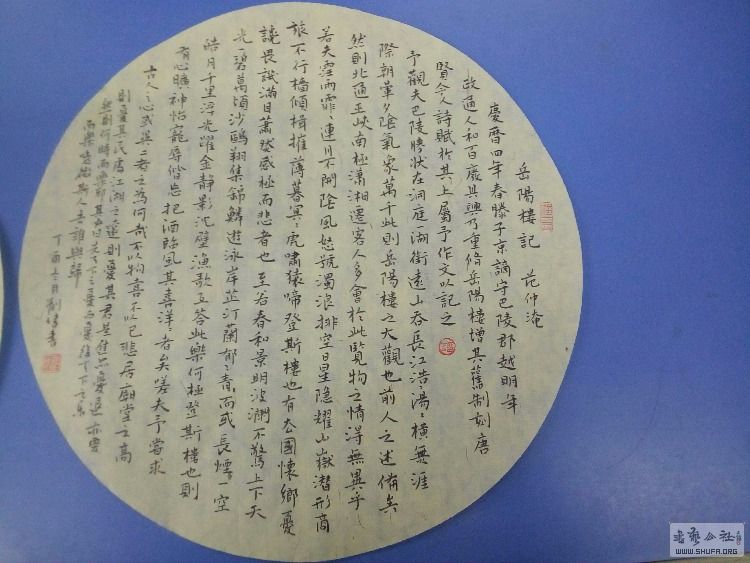 岳陽樓記 范仲淹
慶曆四年春滕子京謫守巴陵郡越明年
政通人和百廢具興乃重修岳陽樓增其舊制刻唐
賢今人詩賦於其上屬予作文以記之
予觀夫巴陵勝狀在洞庭一湖銜遠山吞長江浩〻湯〻橫無涯
際朝暉夕陰氣象萬千此則岳陽樓之大觀也前人之述備矣
然則北通巫峽南極瀟湘遷客人多會於此覽物之情得無異乎
若夫霪雨霏〻連月不開陰風怒號濁浪排空日星隱耀山嶽潛形商
旅不行檣傾楫摧薄暮冥〻虎嘯猿啼登斯樓也有去國懷鄉憂
讒畏譏滿目蕭然感極而悲者也 至若春和景明波瀾不驚上下天
光一碧萬頃沙鷗翔集錦鱗遊泳岸芷汀蘭郁〻青〻而或長煙一空
皓月千里浮光躍金靜影沉璧漁歌互答此樂何極登斯樓也則
有心曠神怡寵辱偕忘把酒臨風其喜洋〻者矣嗟夫予嘗求
古人之心或異二者之為何哉不以物喜不以己悲居廟堂之高
則憂其民處江湖之遠則憂其君是進亦憂退亦憂
然則何時而樂耶其必曰先天下之憂而憂後天下之樂
而樂歟噫微斯人吾誰與歸
丁酉月劉書
書藝公社
WWW.SHUFA.ORG